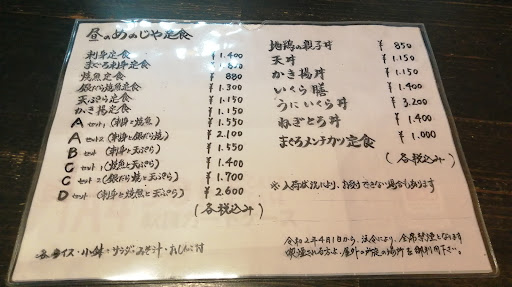 昼のめのじや定食
刺身定食 ¥1.400
まぐろ刺身定食 ¥
焼魚定食 ¥880
銀だら焼定食 ¥1.300
天ぷら定食 ¥1.150
かき揚定食 ¥1.150
Aセット1(刺身と焼魚) ¥1.550
Aセット2(刺身と銀だら焼) ¥2.100
Bセット(刺身と天ぷら) ¥1.550
Cセット1(焼魚と天ぷら) ¥1.400
Cセット2(銀だら焼と天ぷら) ¥1.700
Dセット(刺身と焼魚と天ぷら) ¥2.600
(各税込み)
各ライス・小鉢・サラダ・みそ汁・おしんこ付
地鶏の親子丼 ¥850
天丼 ¥1.150
かき揚丼 ¥1.150
いくら膳 ¥1.400
うにいくら丼 ¥3.200
ねぎとろ丼 ¥1.400
まぐろメンチカツ定食 ¥1.000
(各税込み)
※入荷状況により、お受けできない場合もあります
令和2年4月1日から、法令により、全席禁煙となります
喫煙される方は、屋外の所定の場所を御利用下さい。